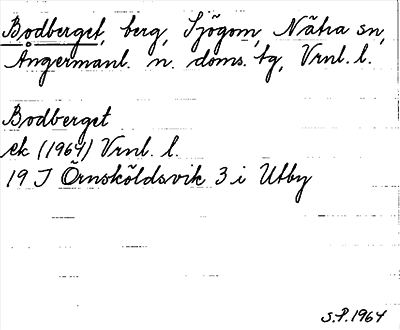 Bodberget, berg, Sjögom, Nätra sn,
Ångermanl. n. doms. tg, Vrnl. l.
Bodberget
ek (1964) Vrnl. l.
19 J Örnsköldsvik 3 i Utby
S.P. 1964